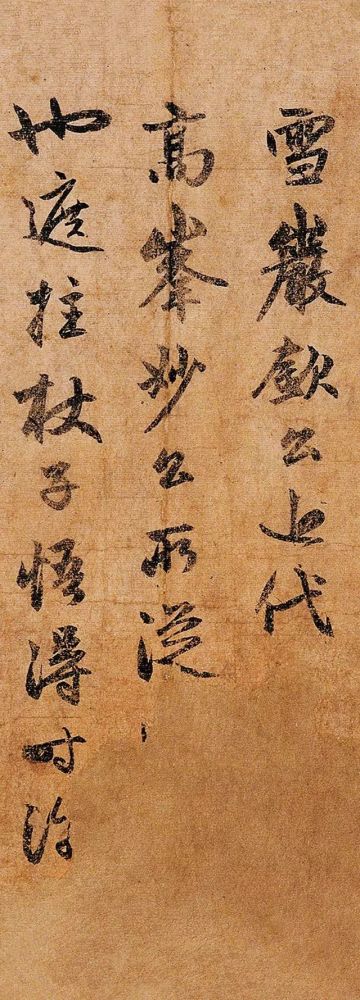 雪巖欽公上代
高峯妙公所從
也遮拄杖子悟得时